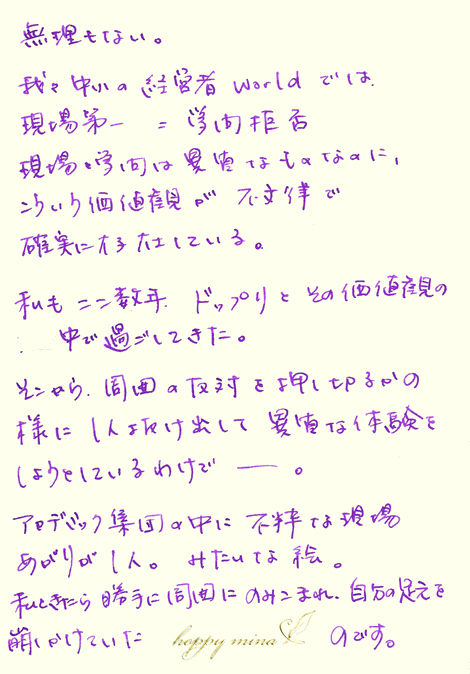 無理もない。
我々中小の経営者worldでは
現場第一 = 学問拒否
現場と学問は異質なものなのに、
こういう価値観が 不文律で
確実に存在している。
私も ここ数年 ドップリと その価値観の
中で過ごしてきた。
そこから、周囲の反対を押し切るかの
様に 1人抜け出して 異質な体験を
しようとしているわけで ― 。
アカデミック集団の中に 不粋な現場
あがりが1人。 みたいな 絵。
私ときたら 勝手に周囲に のみこまれ、自分の足元を
崩しかけていた happy mina のです。